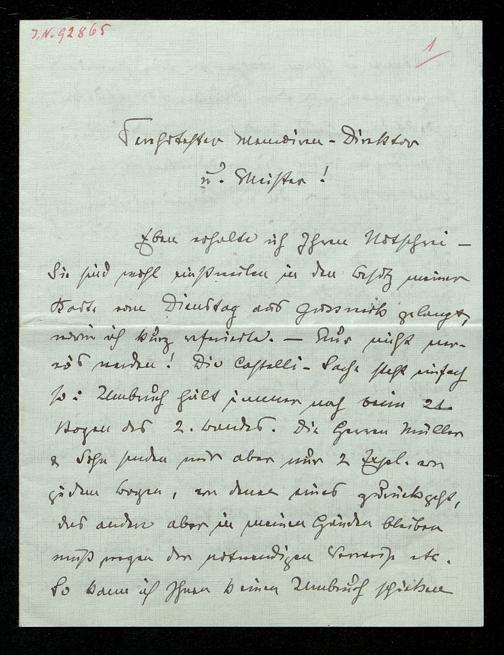 J.N. 92865
1
Verehrtester Memoiren-Direktor
u. Meister!
Eben erhalte ich Ihren Notschrei –
Sie sind wohl einstweilen in den Besitz meiner
Karte vom Dienstag aus gelangt,
worin ich kurz referierte. – Nur nicht ner-
vös werden! Die Castelli-Sache steht einfach
so: Umbruch hält immer noch beim 21
Bogen des 2. Bandes. Die Herren Müller
& Sohn senden mir aber nur 2 Expl. von
jedem Bogen, von denen eines zurückgeht,
das andere aber in meinen Händen bleiben
muß wegen der notwendigen Verweise etc.
So kann ich Ihnen keinen Umbruch schicken